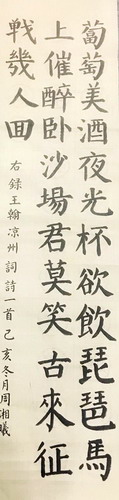 蔔萄美酒夜光杯欲飲琵琶馬
上催醉卧沙場君莫笑古來征
戰幾人回
右録王翰凉州詞詩一首己亥冬月周湘曦